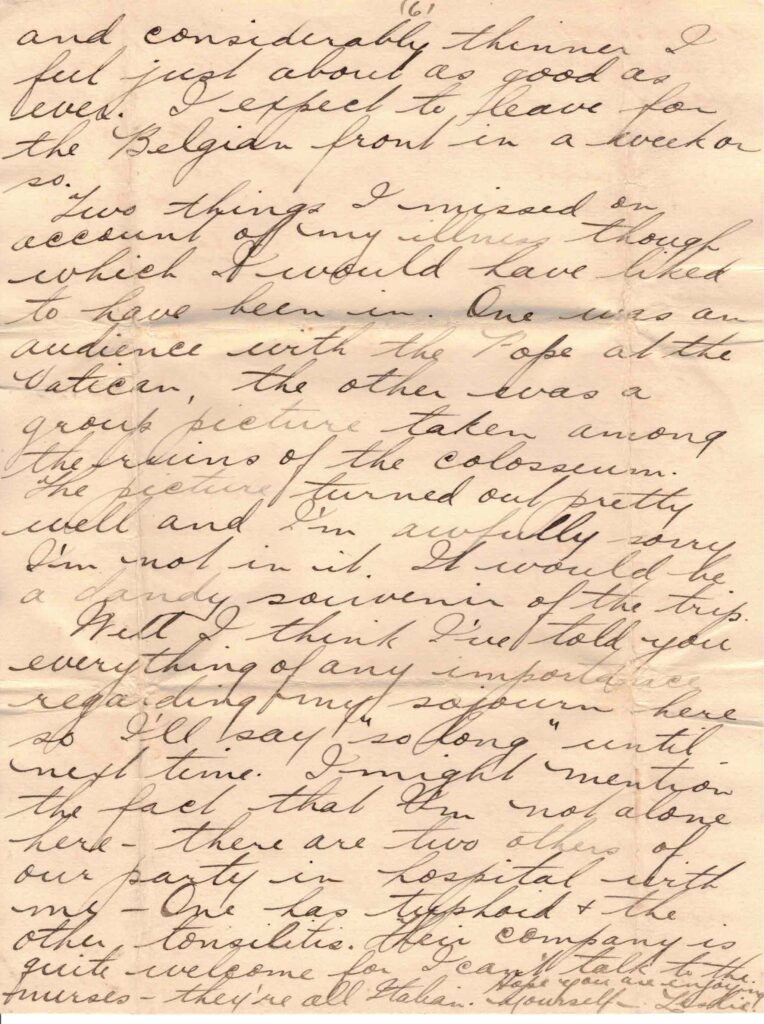 (6)
and considerably thinner I
feel just about as good as
ever. I expect to leave for
the Belgian front in a week or
so.
Two things I missed on
account of my illness though
which I would have liked
to have been in. One was an
audience with the Pope at the
Vatican, the other was a
group picture taken among
the ruins of the colosseum.
The picture turned out pretty
well and I'm awfully sorry
I'm not in it. It would be
a dandy souvenir of the trip.
Well I think I've told you
everything of any importance
regarding my sojourn here
so I'll say "so long" until
next time. I might mention
the fact that I'm not alone
here - there are two others of
our party in hospital with
me - One has typhoid & the
other tonsilitis. Their company is
quite welcome for I can't talk to the
nurses - they're all Italian. Hope you are enjoying
yourself - Leslie.